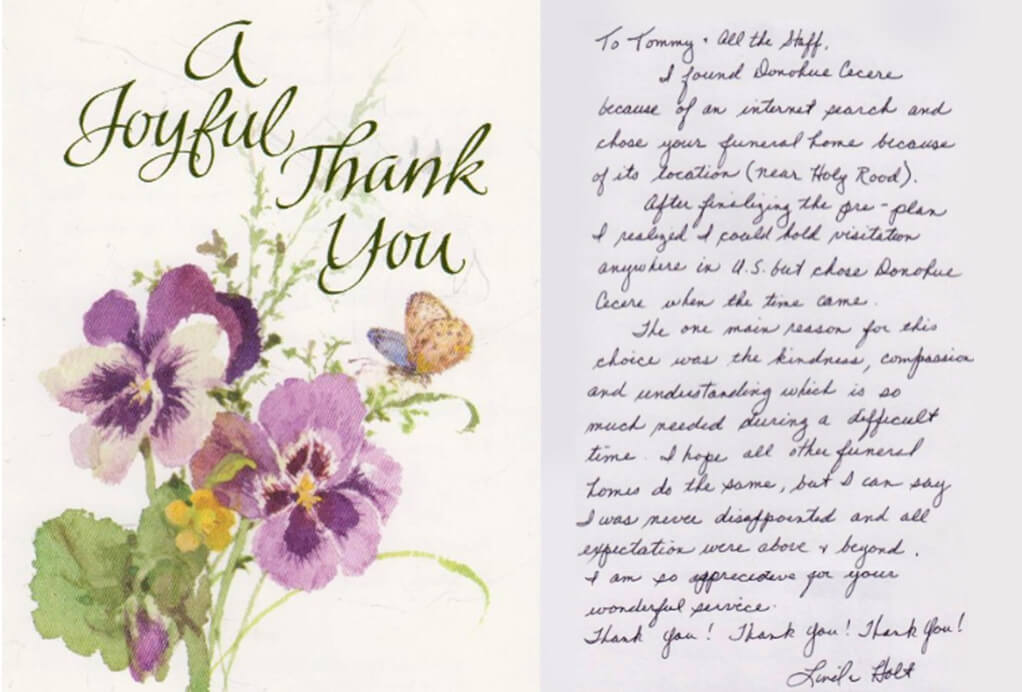 A
Joyful
Thank
You
To Tommy + All the Staff,
I found Donohue Cecere
because of an internet search and
chose your funeral home because
of its location (near Holy Rood).
After finalizing the pre-plan
I realized I could hold visitation
anywhere in U.S. but chose Donohue
Cecere when the time came.
The one main reason for this
choice was the kindness, compassion
and understanding which is so
much needed during a difficult
time. I hope all other funeral
homes do the same, but I can say
I was never disappointed and all
expectation were above & beyond.
I am so appreciative for your
wonderful service.
Thank you! Thank You! Thank You!
Holt